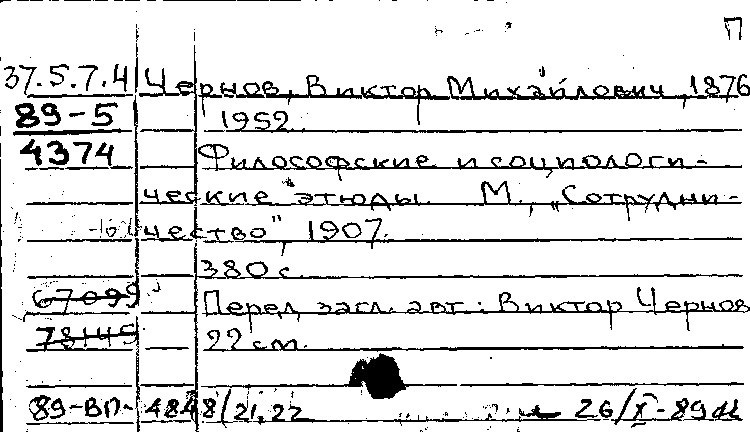 П
37.5.7.4 Чернов, Виктор Михайлович, 1876
89-5 1952.
4374 Философские и социологи-
ческие этюды. М., „Сотрудни-
чество", 1907.
380 с.
67099 Перед загл. авт.: Виктор Чернов
78145 22 см.
89-ВП- 4848/21,22 26/X-89